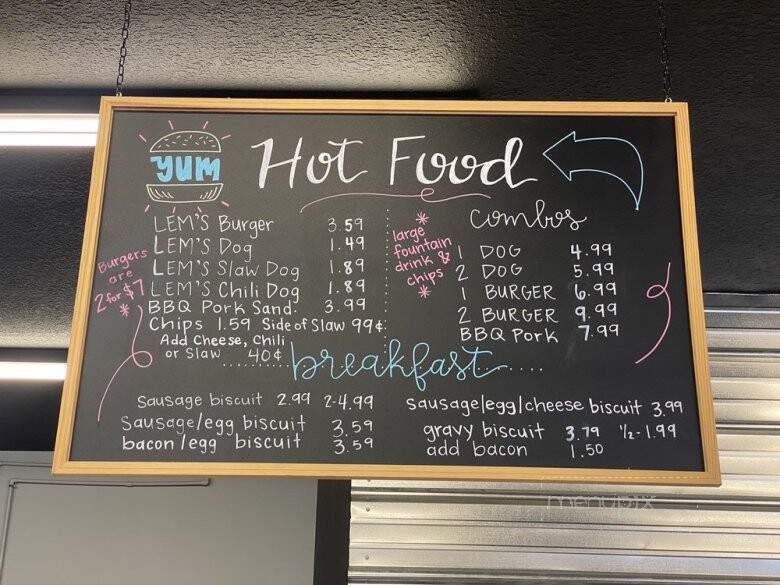 YUM
Hot Food
LEM'S Burger 3.59
LEM'S Dog 1.49
LEM'S Slaw Dog 1.89
LEM'S Chili Dog 1.89
BBQ Pork Sand. 3.99
Chips 1.59 Side of Slaw 99¢
Add Cheese, Chili
or Slaw 40¢
Burgers
are
2 for $7
*
combos
*
large
fountain
drink &
chips
*
1 DOG 4.99
2 DOG 5.99
1 BURGER 6.99
2 BURGER 9.99
BBQ Pork 7.99
breakfast
Sausage biscuit 2.99 2-4.99
Sausage/egg biscuit 3.59
bacon/egg biscuit 3.59
sausage/egg/cheese biscuit 3.99
gravy biscuit 3.79 1/2-1.99
add bacon 1.50
menupix